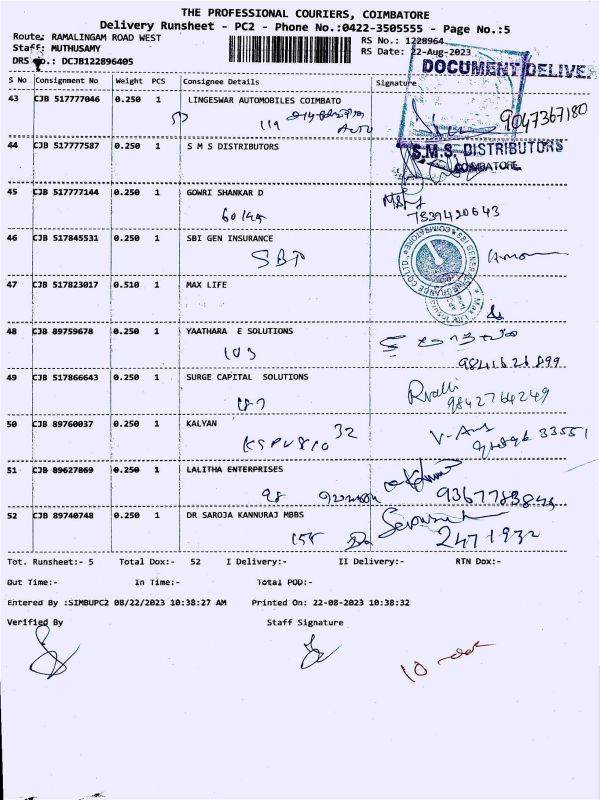 THE PROFESSIONAL COURIERS, COIMBATORE
Delivery Runsheet - PC2 - Phone No.:0422-3505555 - Page No.:5
Route: RAMALINGAM ROAD WEST
RS No.: 1228964
Staff: MUTHUSAMY
RS Date: 22-Aug-2023
DRS No.: DCJB122896405
DOCUMENT DELIVE
S No Consignment No Weight PCS Consignee Details Signature
43 CJB 517777046 0.250 1 LINGESWAR AUTOMOBILES COIMBATO
9047367180
119
44 CJB 517777587 0.250 1 S M S DISTRIBUTORS
S.M.S. DISTRIBUTORS
COIMBATORE.
45 CJB 517777144 0.250 1 GOWRI SHANKAR D
7839420643
46 CJB 517845531 0.250 1 SBI GEN INSURANCE
SBI
SBI GENERAL INSURANCE CO. LTD COIMBATORE
47 CJB 517823017 0.510 1 MAX LIFE
48 CJB 89759678 0.250 1 YAATHARA E SOLUTIONS
103
49 CJB 517866643 0.250 1 SURGE CAPITAL SOLUTIONS
Rvalli
9842764249
50 CJB 89760037 0.250 1 KALYAN
32
33551
51 CJB 89627869 0.250 1 LALITHA ENTERPRISES
98
52 CJB 89740748 0.250 1 DR SAROJA KANNURAJ MBBS
2471932
Tot. Runsheet:- 5 Total Dox:- 52 I Delivery:- II Delivery:- RTN Dox:-
Out Time:- In Time:- Total POD:-
Entered By :SIMBUPC2 08/22/2023 10:38:27 AM Printed On: 22-08-2023 10:38:32
Verified By Staff Signature
10